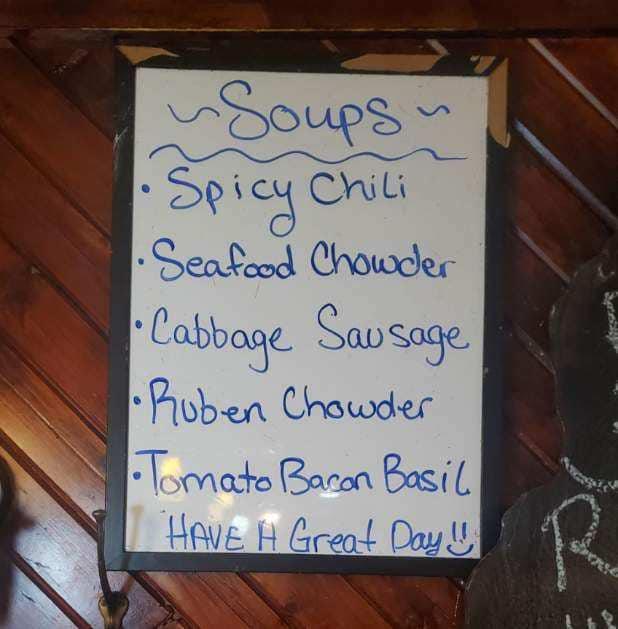 ~Soups~
• Spicy Chili
• Seafood Chowder
• Cabbage Sausage
• Ruben Chowder
• Tomato Bacon Basil
HAVE A Great Day!!